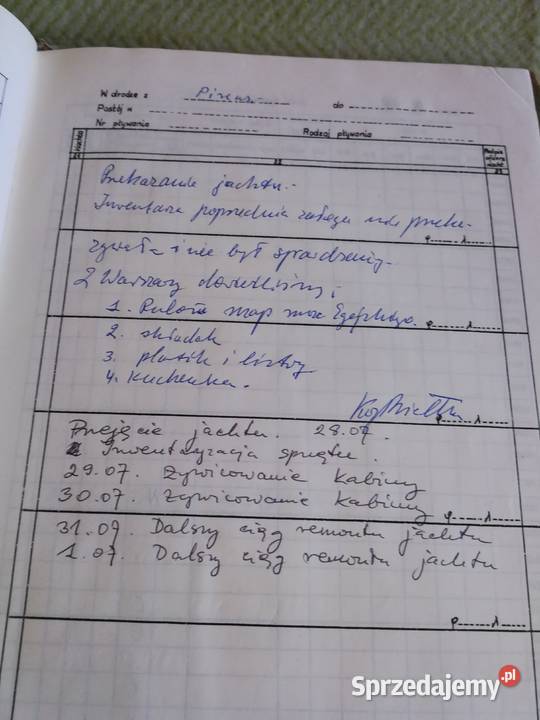 W drodze z Pireus do
Postój w
Nr pływania Rodzaj pływania
Przekazanie jachtu.-
Inwentarza poprzednia załoga nie przeka-
P 1
zywała i nie był sprawdzany.
Z Warszawy dowieźliśmy:
1. map morza Egejskiego.
P 1
2. składak
3. platik i listwy
4. Kuchenka.
P 1
Przejęcie jachtu. 28.07.
Inwentaryzacja sprzętu.
29.07. Żywicowanie kabiny
30.07. Żywicowanie kabiny
P 1
31.07. Dalszy ciąg remontu jachtu
1.07. Dalszy ciąg remontu jachtu
P 1
Sprzedajemy.pl